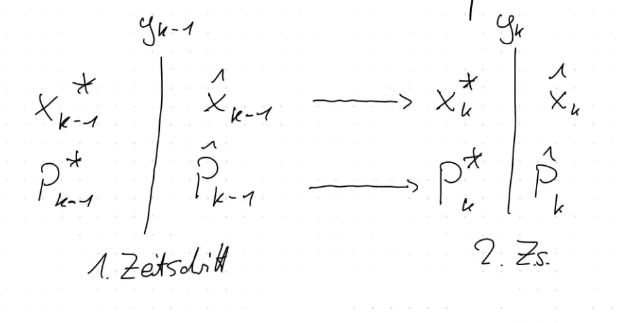 y_{k-1} y_k
x^*_{k-1} x̂_{k-1} → x^*_k x̂_k
P^*_{k-1} P̂_{k-1} → P^*_k P̂_k
1. Zeitschritt 2. Zs.